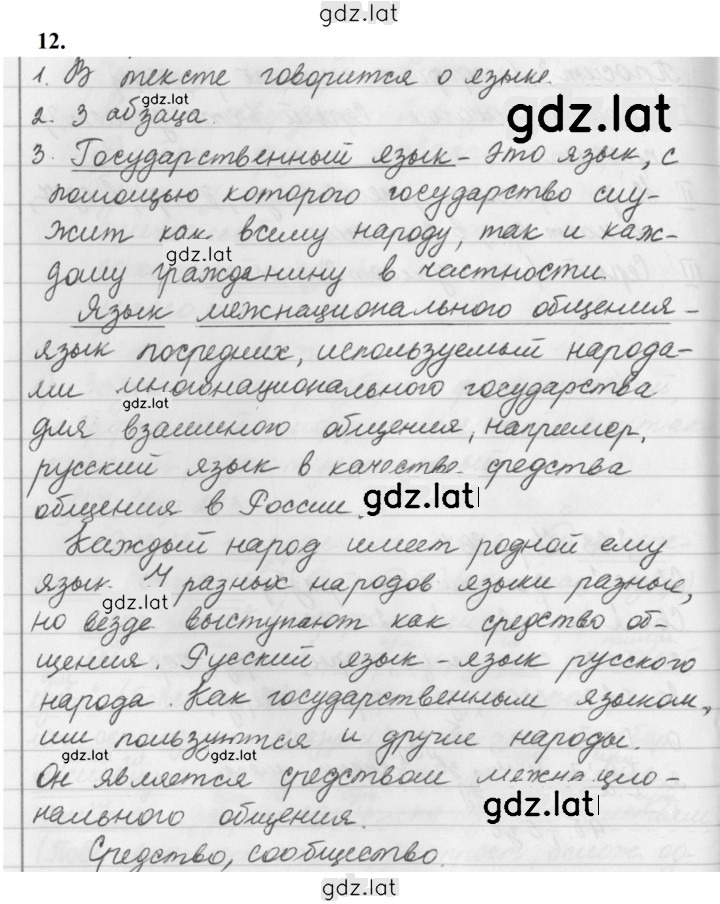 gdz.lat
12.
1. В тексте говорится о языке.
gdz.lat
2. 3 абзаца.
gdz.lat
3. Государственный язык - это язык, с
помощью которого государство слу-
жит как всему народу, так и каж-
gdz.lat
дому гражданину в частности.
Язык межнационального общения -
язык посредник, используемый народа-
ми многонационального государства
gdz.lat
для взаимного общения, например,
русский язык в качестве средства
общения в России.
gdz.lat
Каждый народ имеет родной ему
язык. У разных народов языки разные,
gdz.lat
но везде выступают как средство об-
щения. Русский язык - язык русского
народа. Как государственным языком,
им пользуются и другие народы.
gdz.lat gdz.lat
Он является средством межнацио-
нального общения.
gdz.lat
Средство, сообщество.
gdz.lat